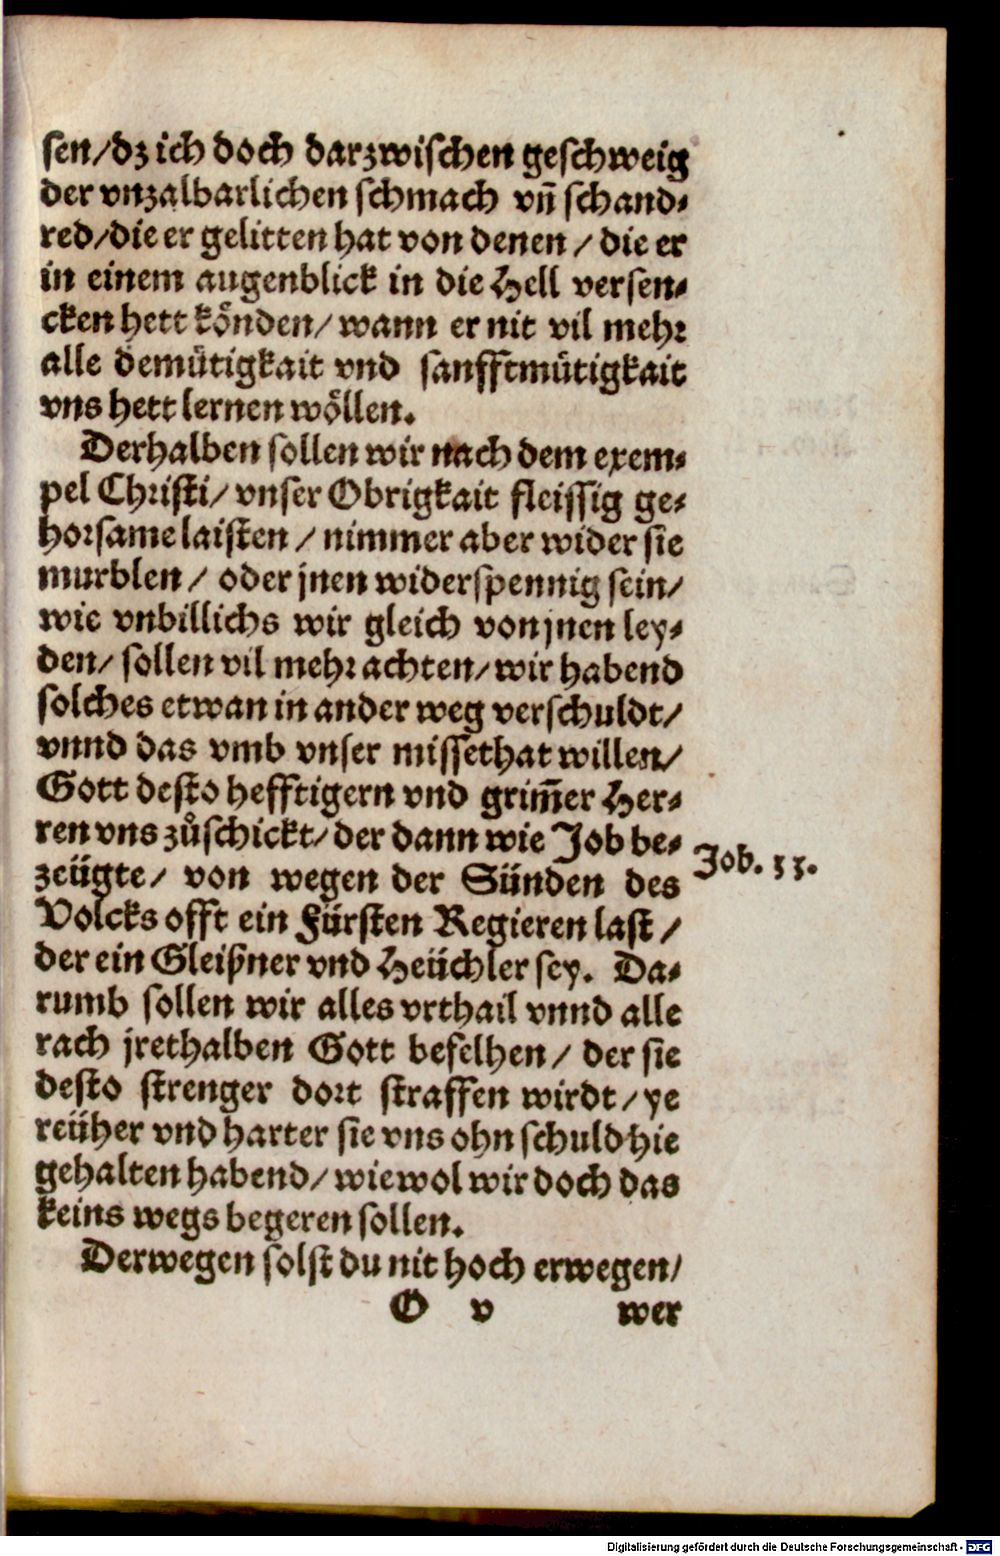 sen/dz ich doch darzwischen geschweig
der vnzalbarlichen schmach vñ schand⸗
red/die er gelitten hat von denen / die er
in einem augenblick in die Hell versen⸗
cken hett koͤnden/ wann er nit vil mehr
alle demuͤtigkait vnd sanfftmuͤtigkait
vns hett lernen woͤllen.
Derhalben sollen wir nach dem exem⸗
pel Christi/ vnser Obrigkait fleissig ge⸗
horsame laisten / nimmer aber wider sie
murblen / oder jnen widerspennig sein/
wie vnbillichs wir gleich von jnen ley⸗
den/ sollen vil mehr achten/ wir habend
solches etwan in ander weg verschuldt/
vnnd das vmb vnser missethat willen/
Gott desto hefftigern vnd grim̃er Her⸗
ren vns zůschickt/ der dann wie Job be⸗
zeügte/ von wegen der Sünden des
Volcks offt ein Fürsten Regieren last /
der ein Gleißner vnd Heüchler sey. Da⸗
rumb sollen wir alles vrthail vnnd alle
rach jrethalben Gott befelhen / der sie
desto strenger dort straffen wirdt / ye
reüher vnd harter sie vns ohn schuld hie
gehalten habend/ wiewol wir doch das
keins wegs begeren sollen.
Derwegen solst du nit hoch erwegen/
O v wer
Job. 33.
Digitalisierung gefördert durch die Deutsche Forschungsgemeinschaft - DFG